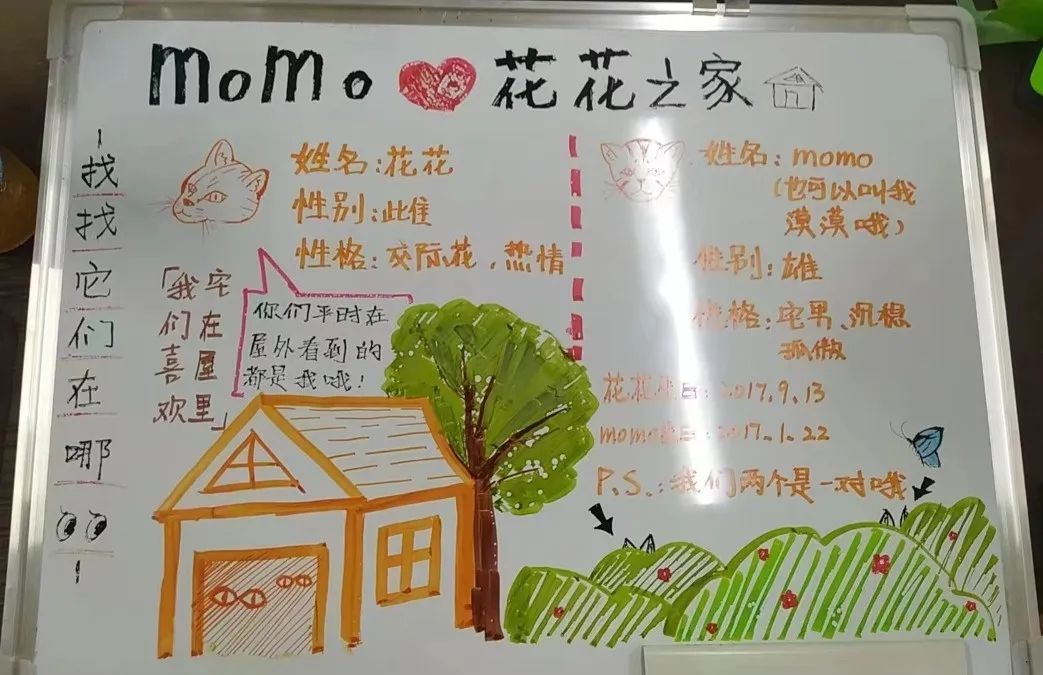 MoMo 花花之家
找找它们在哪
姓名：花花
性别：雌
性格：交际花、热情
「我们喜欢
宅在屋里」
你们平时在
屋外看到的
都是我哦！
姓名：momo
（也可以叫我
漠漠哦）
性别：雄
性格：宅男、沉稳
孤傲
花花生日：2017.9.13
momo生日：2017.1.22
P.S.：我们两个是一对哦